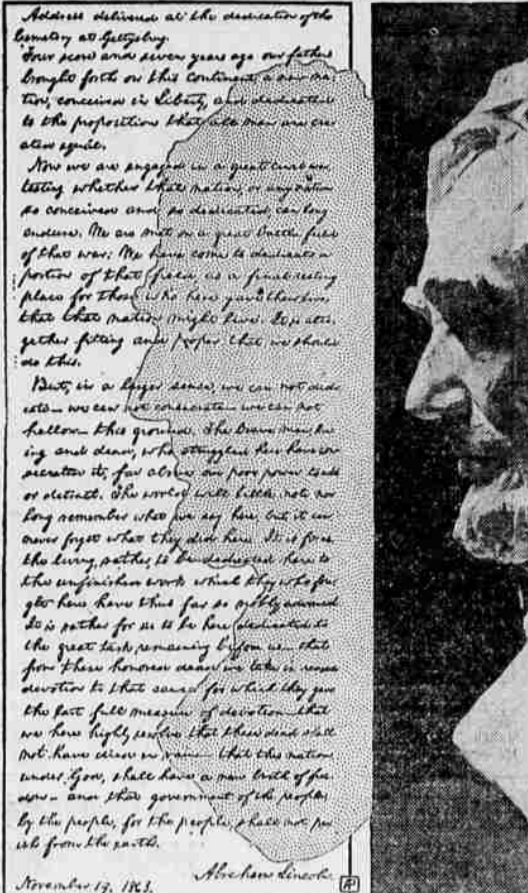 Address delivered at the dedication of the
Cemetery at Gettysburg.
Four score and seven years ago our fathers
brought forth on this continent, a new na-
tion, conceived in Liberty, and dedicated
to the proposition that all men are cre-
ated equal.
Now we are engaged in a great civil war,
testing whether that nation, or any nation
so conceived and so dedicated, can long
endure. We are met on a great battle field
of that war. We have come to dedicate a
portion of that field, as a final resting
place for those who here gave their lives
that that nation might live. It is alto-
gether fitting and proper that we should
do this.
But, in a larger sense, we can not dedi-
cate— we can not consecrate— we can not
hallow— this ground. The brave men, liv-
ing and dead, who struggled here have con-
secrated it, far above our poor power to add
or detract. The world will little note, nor
long remember what we say here, but it can
never forget what they did here. It is for us
the living, rather, to be dedicated here to
the unfinished work which they who fou-
ght here have thus far so nobly advanced.
It is rather for us to be here dedicated to
the great task remaining before us— that
from these honored dead we take increased
devotion to that cause for which they gave
the last full measure of devotion— that
we here highly resolve that these dead shall
not have died in vain— that this nation,
under God, shall have a new birth of free-
dom— and that government of the people,
by the people, for the people, shall not per-
ish from the earth.
Abraham Lincoln.
November 19, 1863.